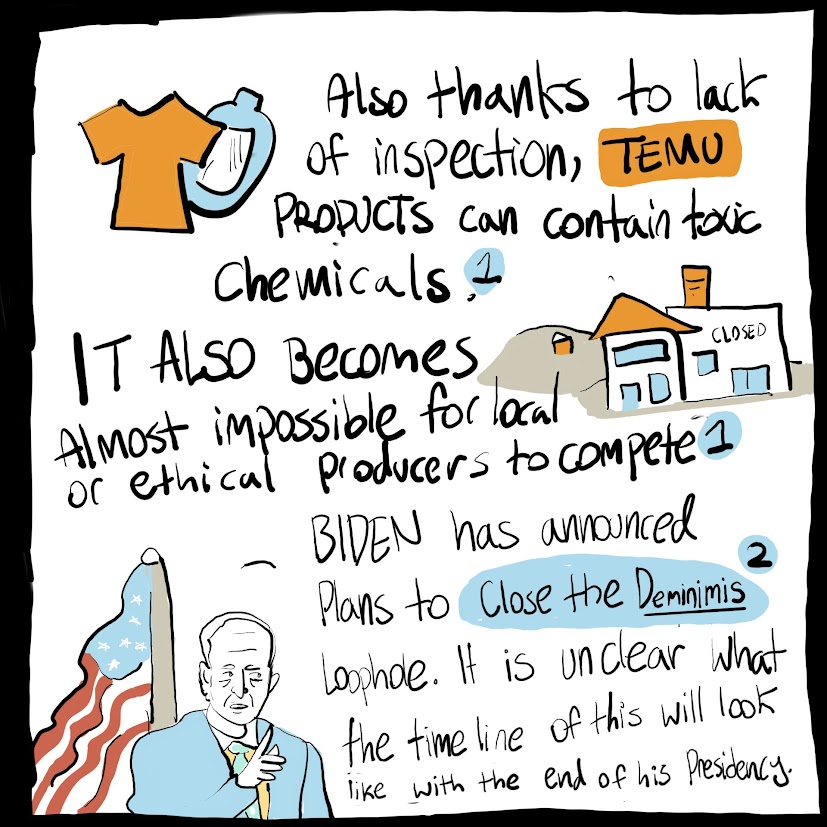 Also thanks to lack
of inspection, TEMU
PRODUCTS can contain toxic
Chemicals. 1
CLOSED
IT ALSO Becomes
Almost impossible for local
or ethical producers to compete 1
BIDEN has announced
Plans to Close the Deminimis 2
Loophole. It is unclear what
the timeline of this will look
like with the end of his Presidency.